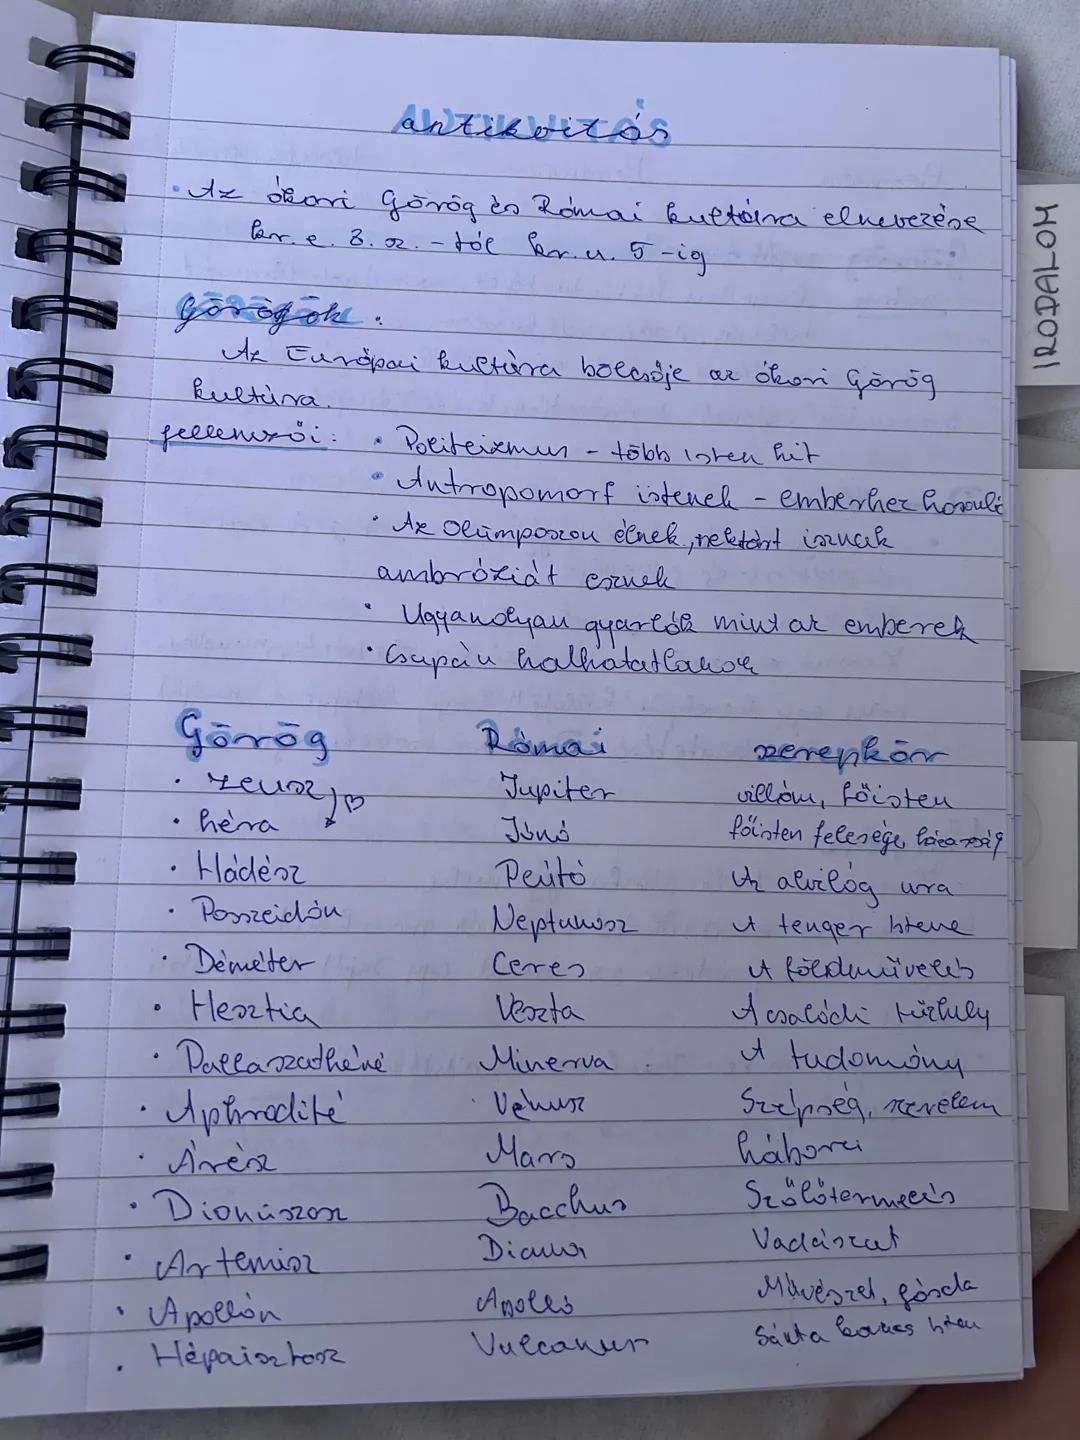 antikvitás
• Az ókori Görög és Római kultúra elnevezése
kr. e. 8. sz. - tól kr. u. 5 -ig
Görögök :
Az Európai kultúra bölcsője az ókori Görög
kultúra.
jellemzői: • Politeizmus - több isten hit
• Antropomorf istenek - emberhez hasonló
• Az Olümposzon élnek, nektárt isznak
ambróziát esznek
• Ugyanolyan gyarlók mint az emberek
• Csupán halhatatlanok
Görög Római szerepkör
• Zeusz Jupiter villám, főisten
• héra Júnó főisten felesége, házasság
• Hádész Plútó Az alvilág ura
• Poszeidón Neptunusz A tenger Istene
• Démétér Ceres A földművelés
• Hesztia Veszta A családi tűzhely
• Pallaszathéné Minerva A tudomány
• Aphrodité Vénusz Szépség, szerelem
• Árész Mars háború
• Dionüszosz Bacchus Szőlőtermelés
• Artemisz Diana Vadászat
• Apollón Apolló Művészet, jósda
• Hépaisztosz Vulcanus Sánta kovács Isten
IRODALOM